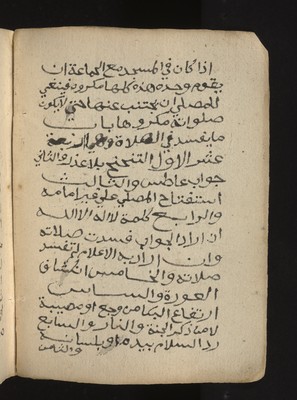 اذا كان في المسجد مع الجماعة ان
يقوم وحده هذه كلها مكروه فينبغي
للمصلي ان يجتنب عنها حتى لا يكون
صلواته مكروها باب
ما يفسد في الصلاة وهي اربعة
عشر الاول التنحنح بلا عذر والثاني
جواب عاطس والثالث
استفتاح المصلي على غير امامه
والرابع كلمة لا اله الا الله
ان اراد الجواب فسدت صلاته
وان اراد به الاعلام لم تفسد
صلاته والخامس انكشاف
العورة والسادس
ارتفاع البكا من وجع او مصيبة
لا من ذكر الجنة والنار والسابع
رد السلام بيده او بلسانه
والثامن